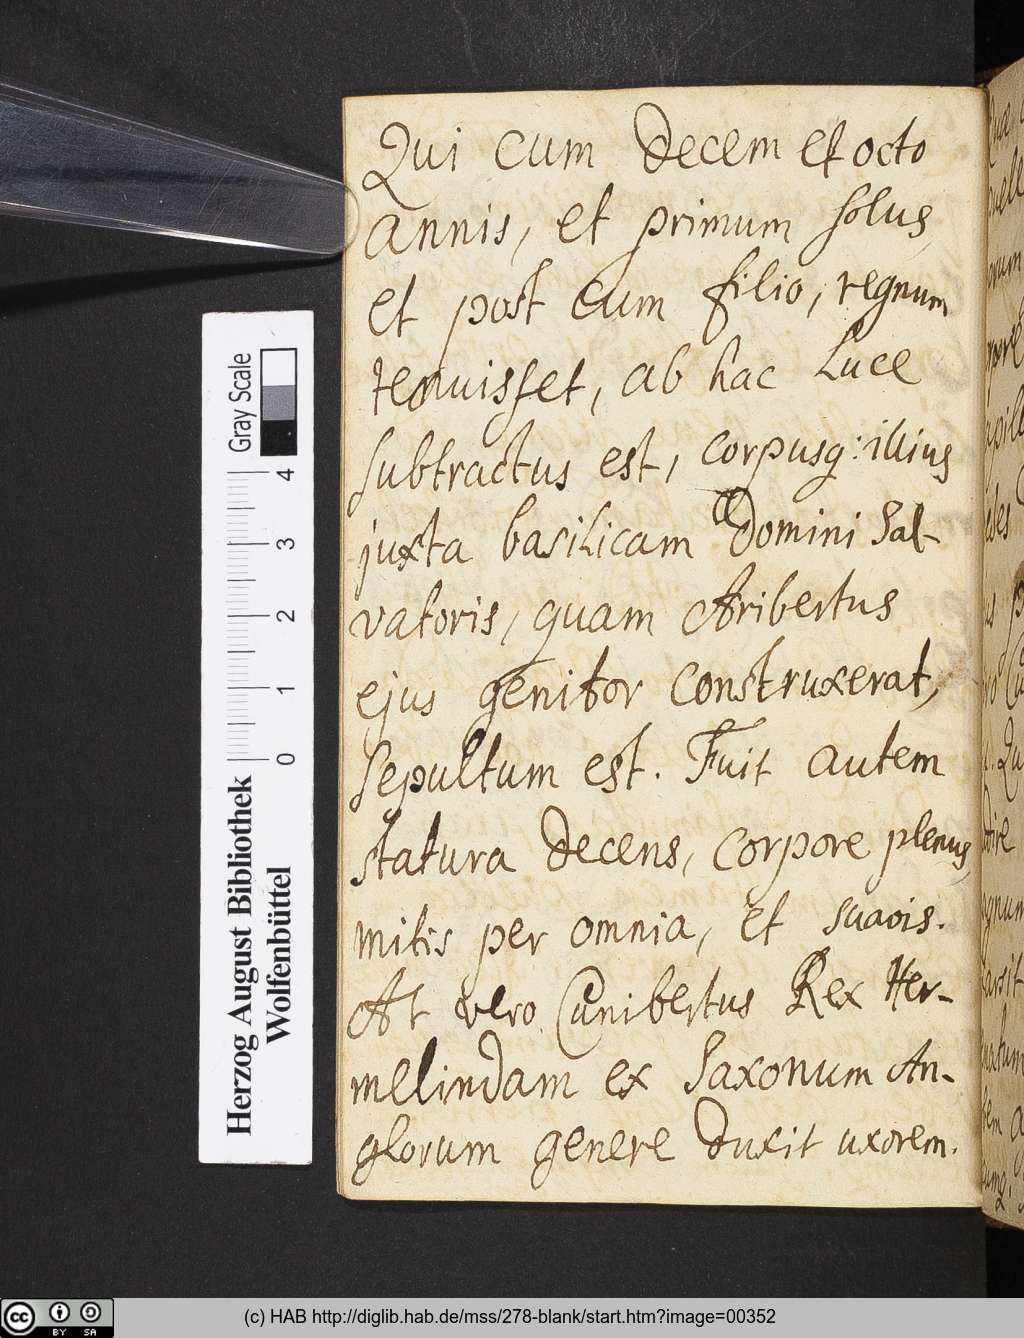 Qui cum decem et octo
annis, et primum solus,
et post cum filio, regnum
tenuisset, ab hac Luce
subtractus est, corpusq: illius
juxta basilicam Domini Sal-
vatoris, quam Aribertus
ejus genitor construxerat,
sepultum est. Fuit autem
statura decens, corpore plenus,
mitis per omnia, et suavis.
At vero Cunibertus Rex Her-
melindam ex Saxonum An-
glorum genere duxit uxorem.
Gray Scale
4 3 2 1 0
Herzog August Bibliothek
Wolfenbüttel
(c) HAB http://diglib.hab.de/mss/278-blank/start.htm?image=00352
cc BY SA